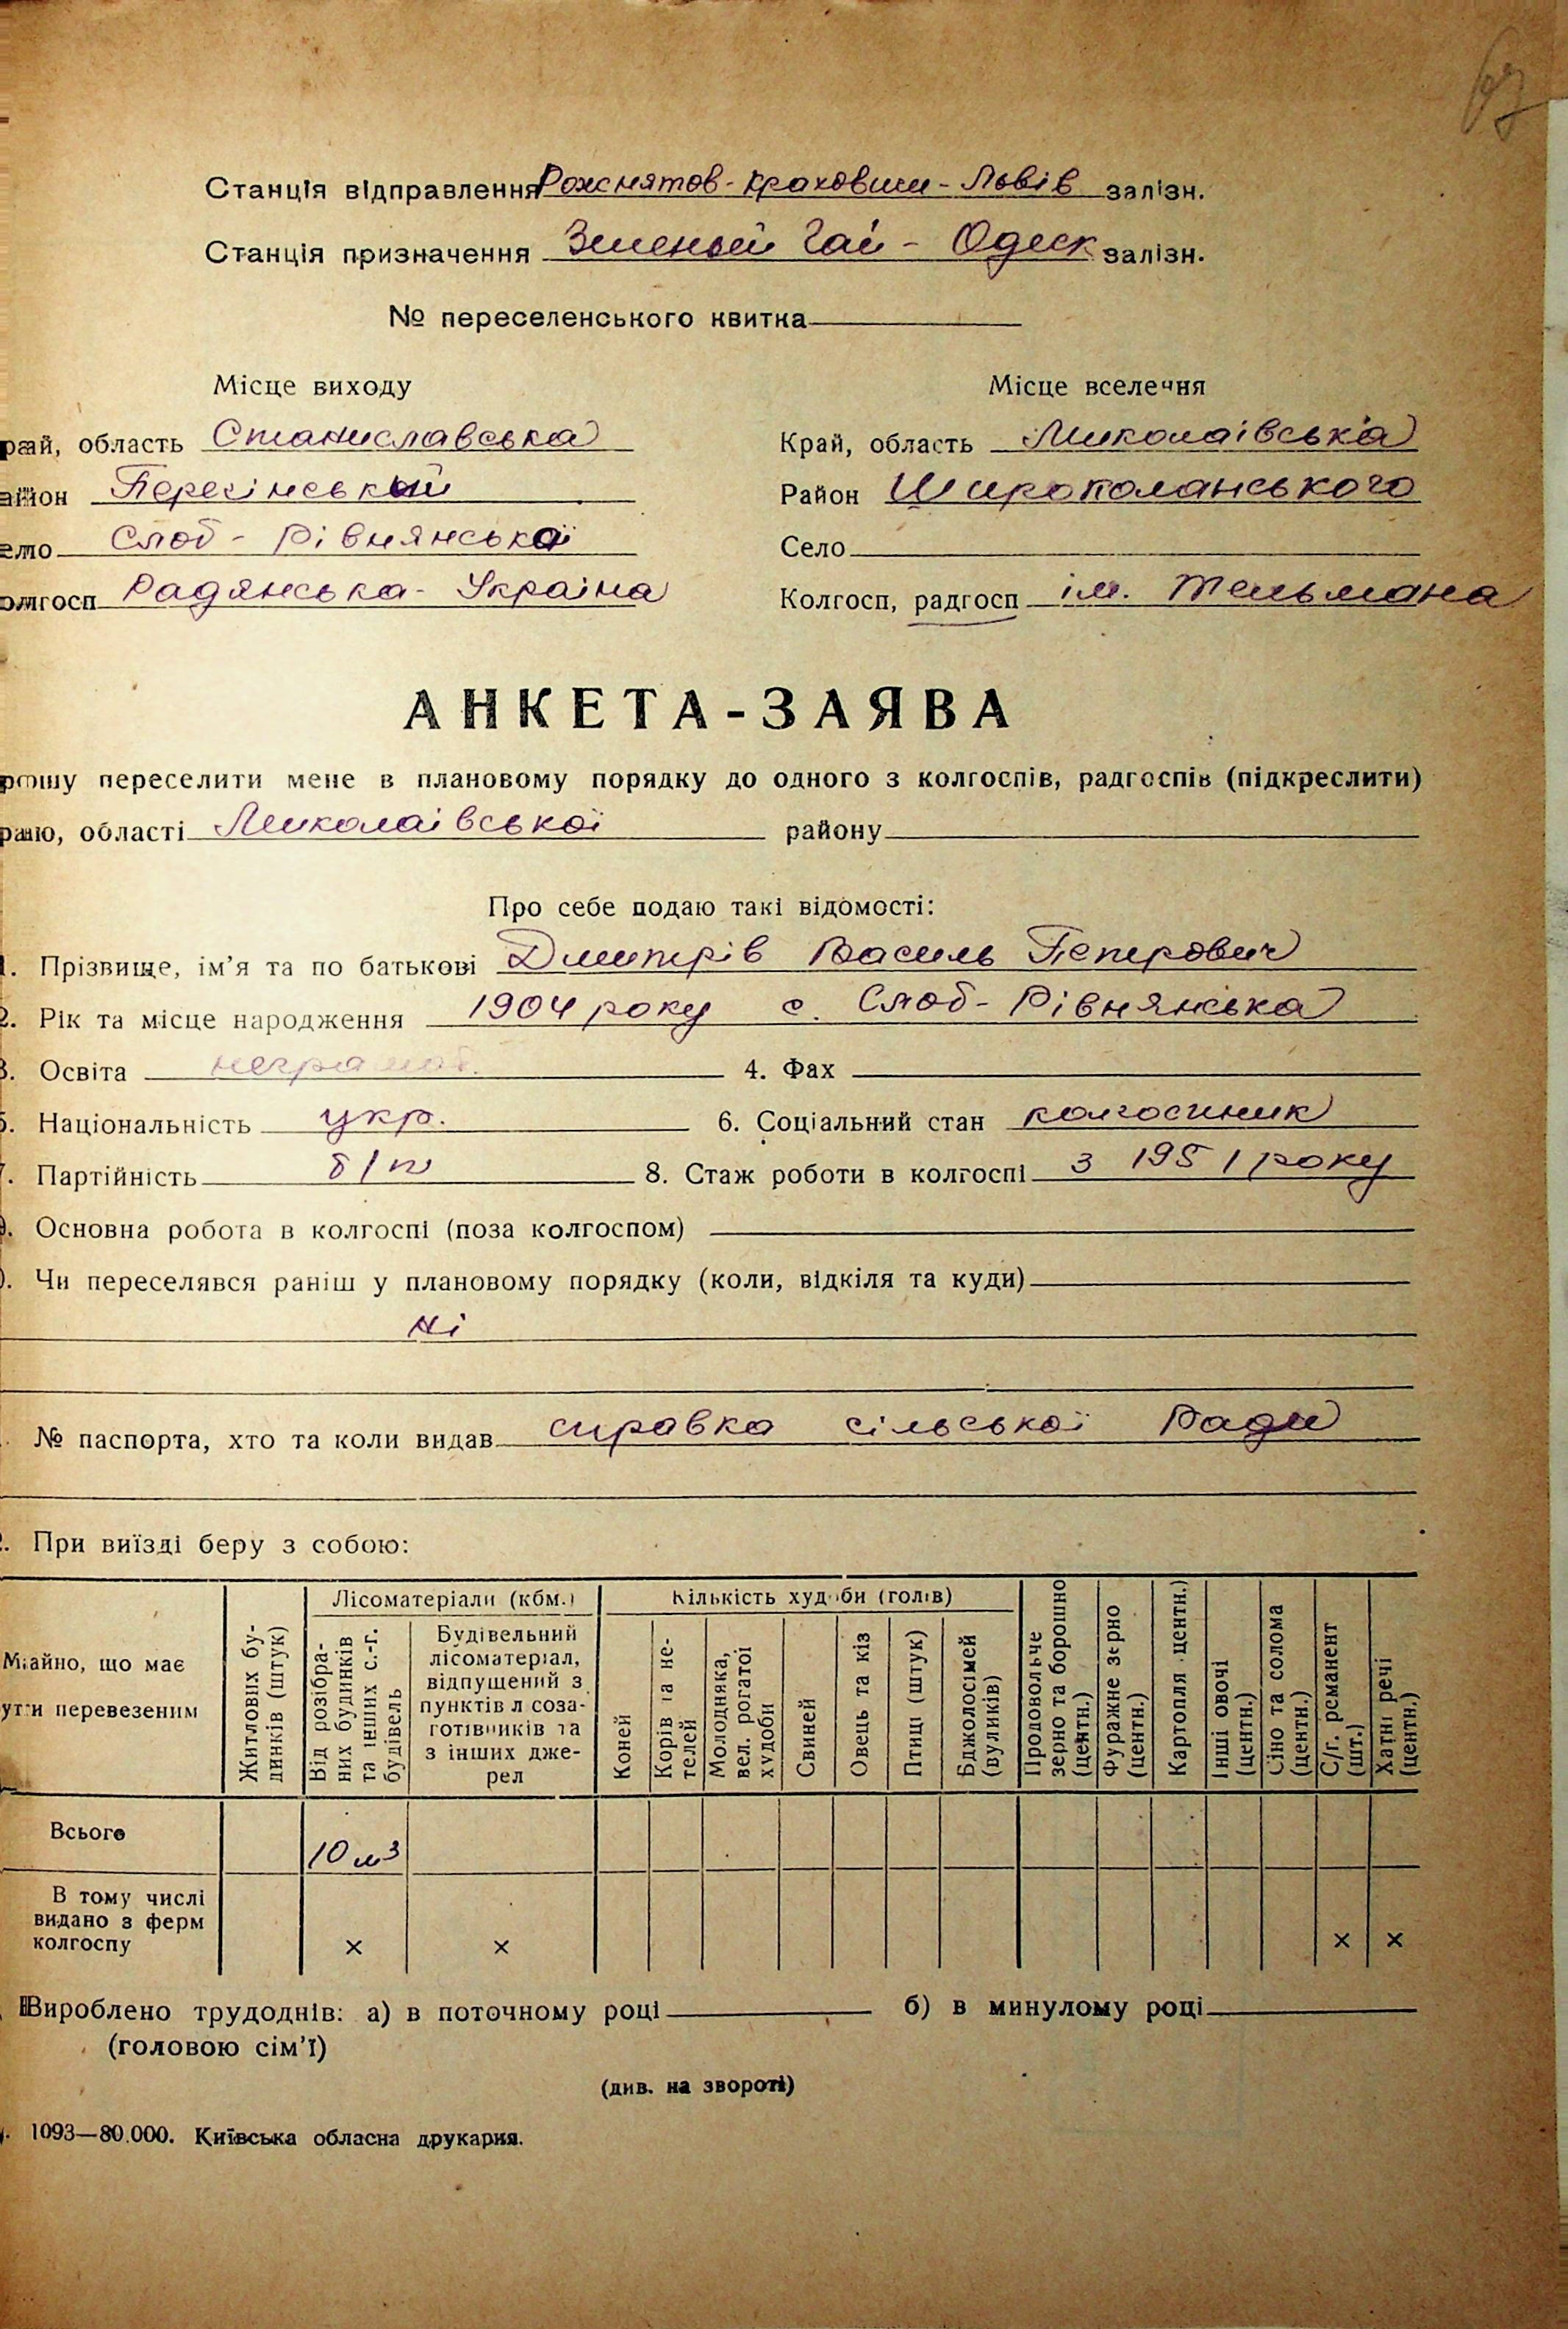 67
Станція відправлення Рожнятов - Краховичи - Львів залізн.
Станція призначення Зеленый Гай - Одеск залізн.
№ переселенського квитка
Місце виходу Місце вселення
рай, область Станиславська Край, область Миколаївська
айон Перегінський Район Широколанського
ело Слоб - Рівнянської Село
олгосп Радянська - Україна Колгосп, радгосп ім. Тельмана
АНКЕТА-ЗАЯВА
рошу переселити мене в плановому порядку до одного з колгоспів, радгоспів (підкреслити)
раю, області Миколаївської району
Про себе подаю такі відомості:
1. Прізвище, ім'я та по батькові Дмитрів Василь Петрович
2. Рік та місце народження 1904 року с. Слоб - Рівнянська
3. Освіта неграмот. 4. Фах
5. Національність укр. 6. Соціальний стан колгоспник
7. Партійність б/п 8. Стаж роботи в колгоспі з 1951 року
9. Основна робота в колгоспі (поза колгоспом)
0. Чи переселявся раніш у плановому порядку (коли, відкіля та куди)
ні
№ паспорта, хто та коли видав справка сільської Ради
2. При виїзді беру з собою:
Майно, що має
ути перевезеним
Житлових бу-
динків (штук)
Лісоматеріали (кбм.)
Від розібра-
них будинків
та інших с.-г.
будівель
Будівельний
лісоматеріал,
відпущений з
пунктів л соза-
готівників та
з інших дже-
рел
Кількість худоби (голів)
Коней
Корів та не-
телей
Молодняка,
вел. рогатої
худоби
Свиней
Овець та кіз
Птиці (штук)
Бджолосімей
(вуликів)
Продовольче
зерно та борошно
(центн.)
Фуражне зерно
(центн.)
Картопля центн.)
Інші овочі
(центн.)
Сіно та солома
(центн.)
С/г. реманент
(шт.)
Хатні речі
(центн.)
Всього 10 м³
В тому числі
видано з ферм
колгоспу × × × ×
Вироблено трудоднів: а) в поточному році б) в минулому році
(головою сім'ї)
(див. на звороті)
1093—80.000. Київська обласна друкарня.